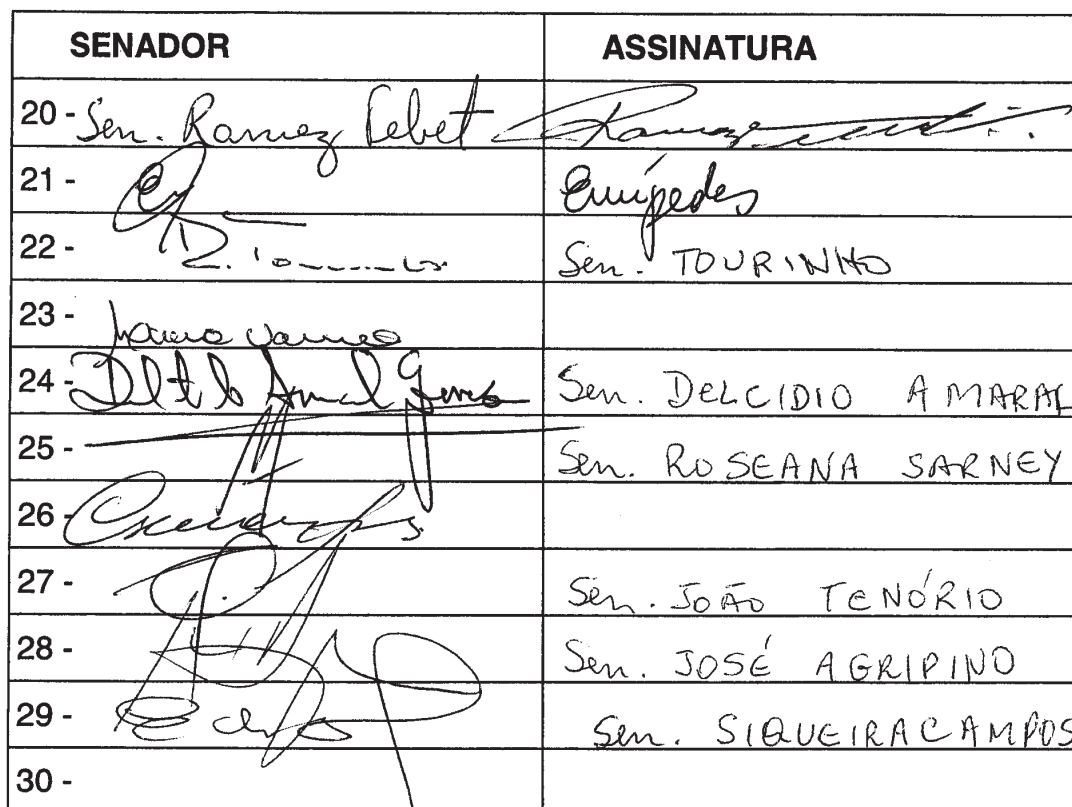 SENADOR ASSINATURA
20 - Sen. Ramez Tebet Ramez Tebet
21 - Eurípedes
22 - Sen. TOURINHO
23 -
24 - Delcídio Amaral Gomez Sen. DELCIDIO AMARAL
25 - Sen. ROSEANA SARNEY
26 -
27 - Sen. JOÃO TENÓRIO
28 - Sen. JOSÉ AGRIPINO
29 - Sen. SIQUEIRA CAMPOS
30 -